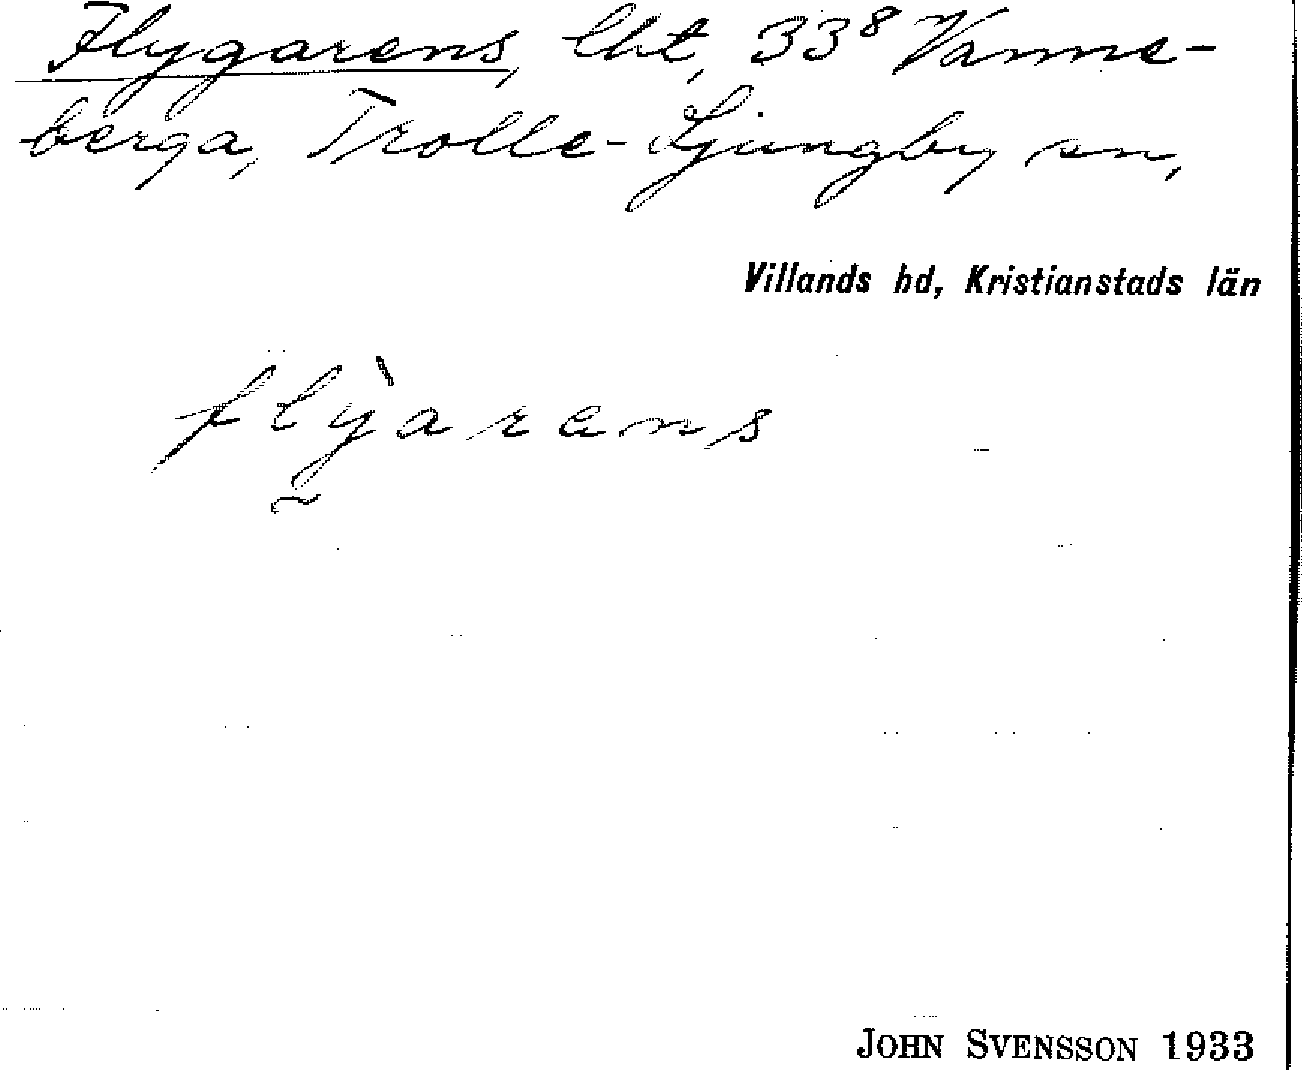 Flygarens, lht, 33⁸ Vanne-
berga, Trolle-Ljungby sn,
Villands hd, Kristianstads län
flỳarens
JOHN SVENSSON 1933